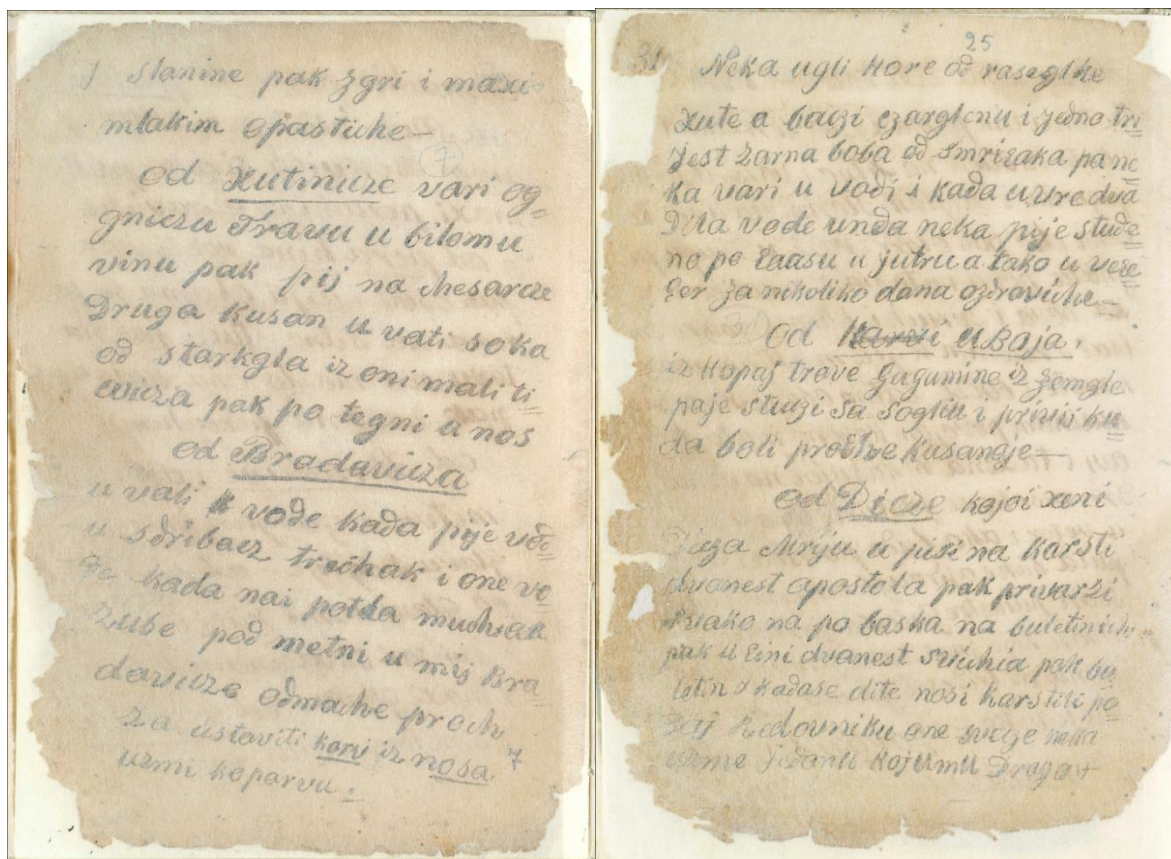 slanine pak zgri i maxi
mlakim opastiche—
7
od Xutinicze vari og=
gniczu Travu u bilomu
vinu pak pij na Mesarcze
Druga kusan u vati soka
od starkgla iz oni mali ti=
cvicza pak po tegni u nos
od Bradavicza
u vati vode kada pije vođ
u sdribacz trechak i one vo=
kada nai potla
zube pod metni u mij Bra
davicze odmache proch
za ustaviti karv iz nosa 7
uzmi koparvu.
25
31 Neka ugli kore od raseglke
xute a bagzi czarglenu i jedno tri=
jest zarna boba od Smrizaka pa ne=
ka vari u vodi i kada uzvre dva
Dila vode unda neka pije stude=
no po Eaasu u jutru a tako u veze=
Eer za nikoliko dana ozdraviche—
Od Karvi u Baja.
iz kopaj trave Gagumine iz zemgle
paje stuzi sa Sogliu i privij ku=
da boli prochve kusanoje—
od Dicze kojoi xeni
Dicza Mriju u pisi na karsti
dvanest apostola pak privarzi
svako na po baska na buletinich
pak u Eini dvanest Svichia pak bu
letin a kadase dite nosi karstiti po=
daj Redovniku one svieje neka
uzme jedanu kojumu Drago+